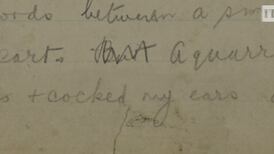 words between a sm
earts But A quarr
s + cocked my ears